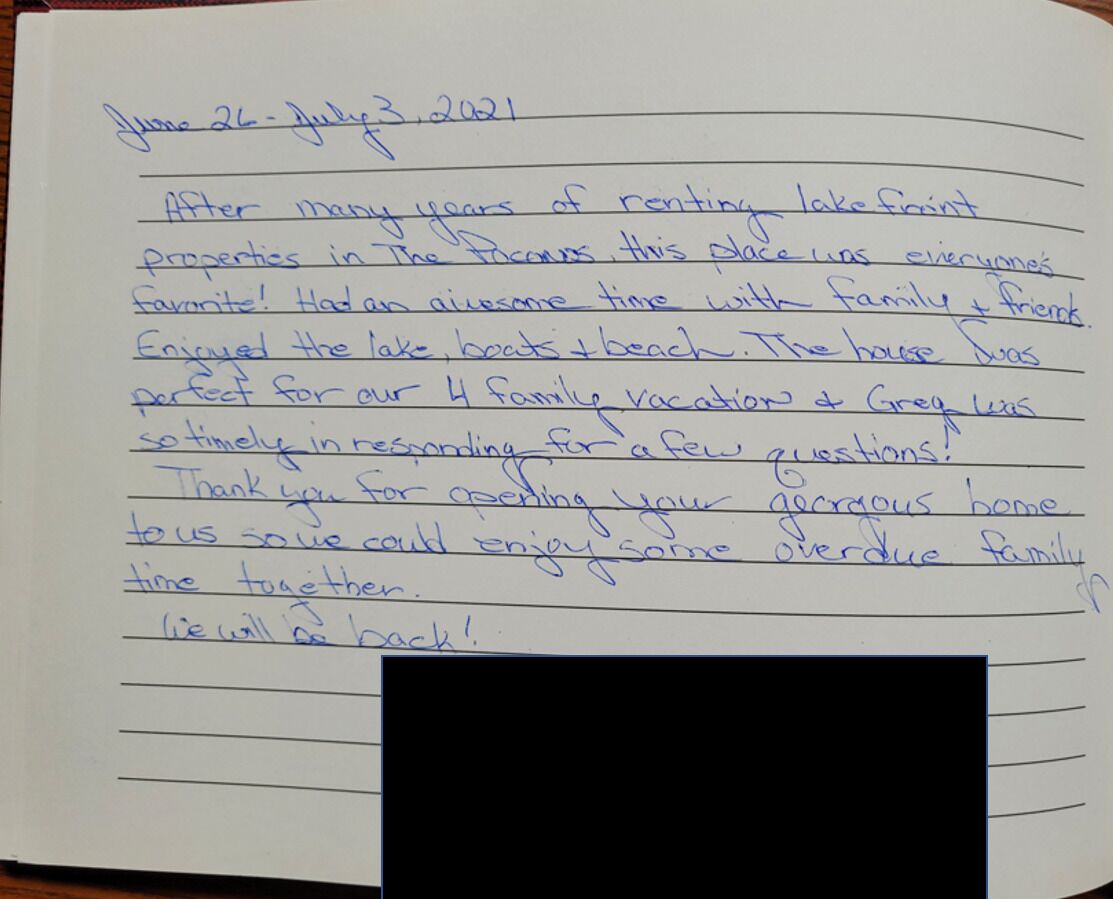 June 26 - July 3, 2021
After many years of renting lakefront
properties in The Poconos, this place was everyone's
favorite! Had an awesome time with family + friends.
Enjoyed the lake, boats + beach. The house was
perfect for our 4 family vacation & Greg was
so timely in responding for a few questions!
Thank you for opening your georgous home
to us so we could enjoy some overdue family
time together.
We will be back!